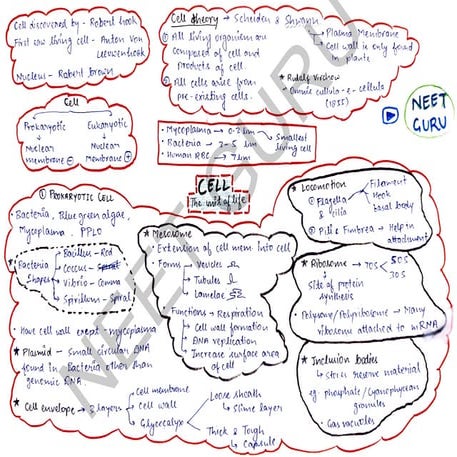 Cell discovered by - Robert hook
First saw living cell - Anton Von
Leeuwenhoek
Nucleus - Robert brown
Cell theory → Scheiden & Shwann
① All living organism are
composed of cell and
products of cell.
② All cells arise from
pre-existing cells.
→ Plasma Membrane
→ Cell wall is only found
in plants
* Rudolf Virchow
- Omnis cellula-e-cellula
(1855)
NEET
GURU
Cell
Prokaryotic
Eukaryotic
Nuclear
membrane ⊖
Nuclear
Membrane ⊕
• Mycoplasma → 0.3 μm → Smallest
living cell
• Bacteria → 3-5 μm
• Human RBC → 7 μm
CELL
The unit of life
① PROKARYOTIC CELL
• Bacteria, Blue green algae,
Mycoplasma, PPLO
* Bacteria
shapes
Bacillus - Rod
Coccus -
Vibrio - Comma
Spirillum - Spiral
• Have cell wall except mycoplasma
* Plasmid - Small circular DNA
found in Bacteria other than
genomic DNA
* Cell envelope → 3 layers
Cell membrane
Cell wall
Glycocalyx
Loose sheath
↳ Slime layer
Thick & Tough
↳ Capsule
* Mesosome
• Extention of cell mem into cell
• Forms
Vesicles
Tubules
Lamelae
Functions → Respiration
→ Cell wall formation
→ DNA replication
→ Increase surface area
of cell
* Locomotion
① Flagella
& Cilia
Filament
Hook
basal body
② Pili & Fimbrea → Help in
attachment
* Ribosome → 70S
50S
30S
↳ Site of protein
synthesis
Polysome/Polyribosome → Many
ribosome attached to mRNA
* Inclusion bodies
↳ store reserve material
eg: phosphate/cyanophycean
granules
• Gas vacuoles
NEET GURU